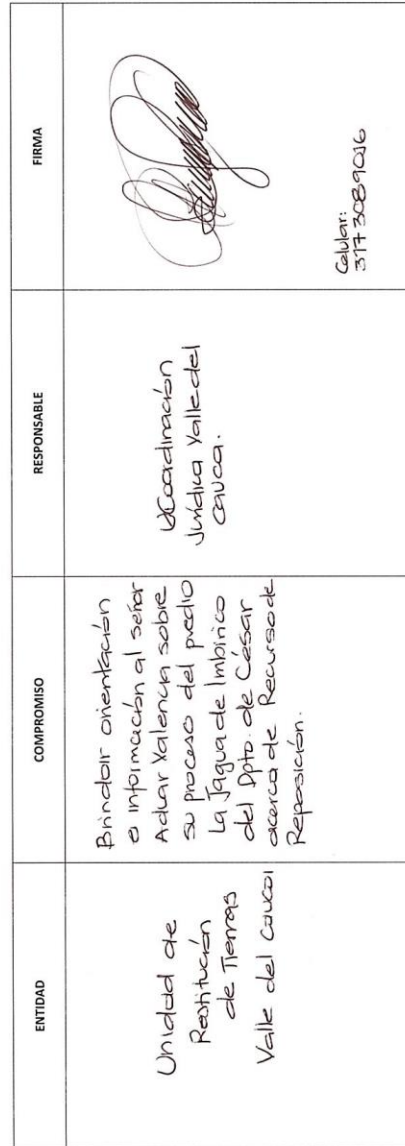 ENTIDAD
COMPROMISO
RESPONSABLE
FIRMA
Unidad de
Restitución
de Tierras
Valle del Cauca
Brindar orientación
e información al señor
Aduar Valencia sobre
su proceso del predio
La Jagua de Imbirico
del Dpto. de César
acerca de Recurso de
Reposición.
Coordinación
Jurídica Valle del
Cauca.
Celular:
3173089016